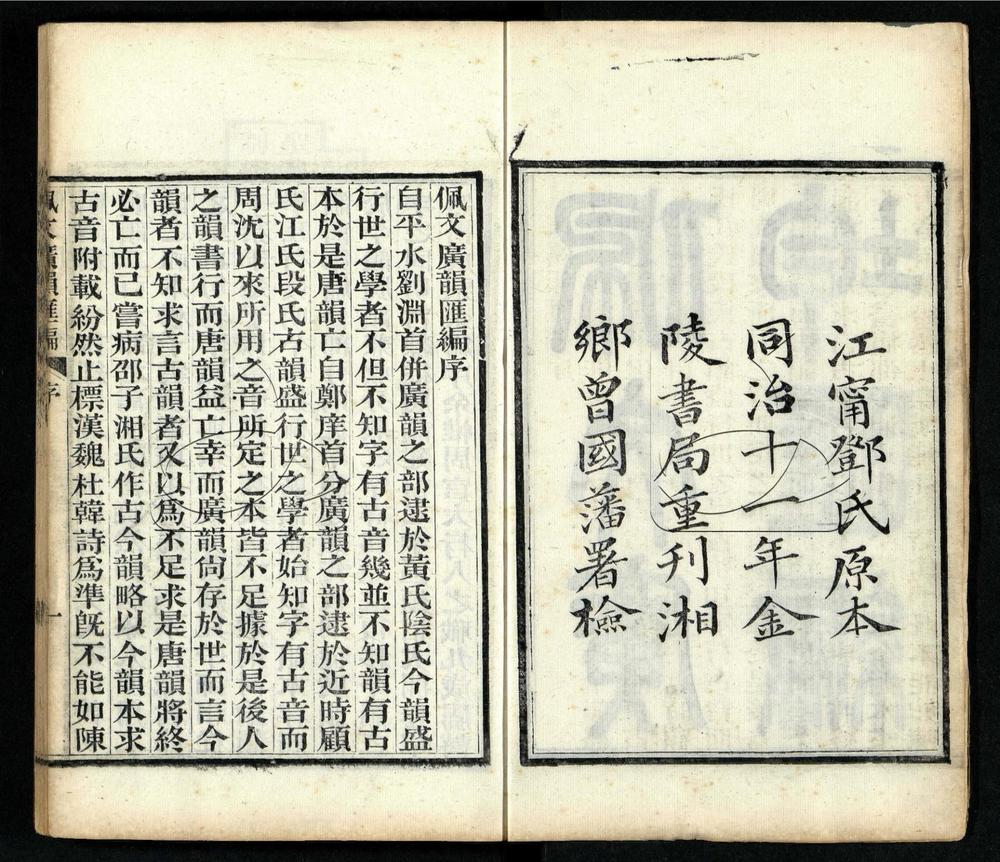 江甯鄧氏原本
同治十一年金
陵書局重刊湘
鄉曾國藩署檢
佩文廣韻匯編序
自平水劉淵首併廣韻之部逮於黃氏陰氏今韻盛
行世之學者不但不知字有古音幾並不知韻有古
本於是唐韻亡自鄭庠首分廣韻之部逮於近時顧
氏江氏段氏古韻盛行世之學者始知字有古音而
周沈以來所用之音所定之本皆不足據於是後人
之韻書行而唐韻益亡幸而廣韻尙存於世而言今
韻者不知求言古韻者又以爲不足求是唐韻將終
必亡而已嘗病邵子湘氏作古今韻略以今韻本求
古音附載紛然止標漢魏杜韓詩爲準旣不能如陳
佩文廣韻匯編
序
一